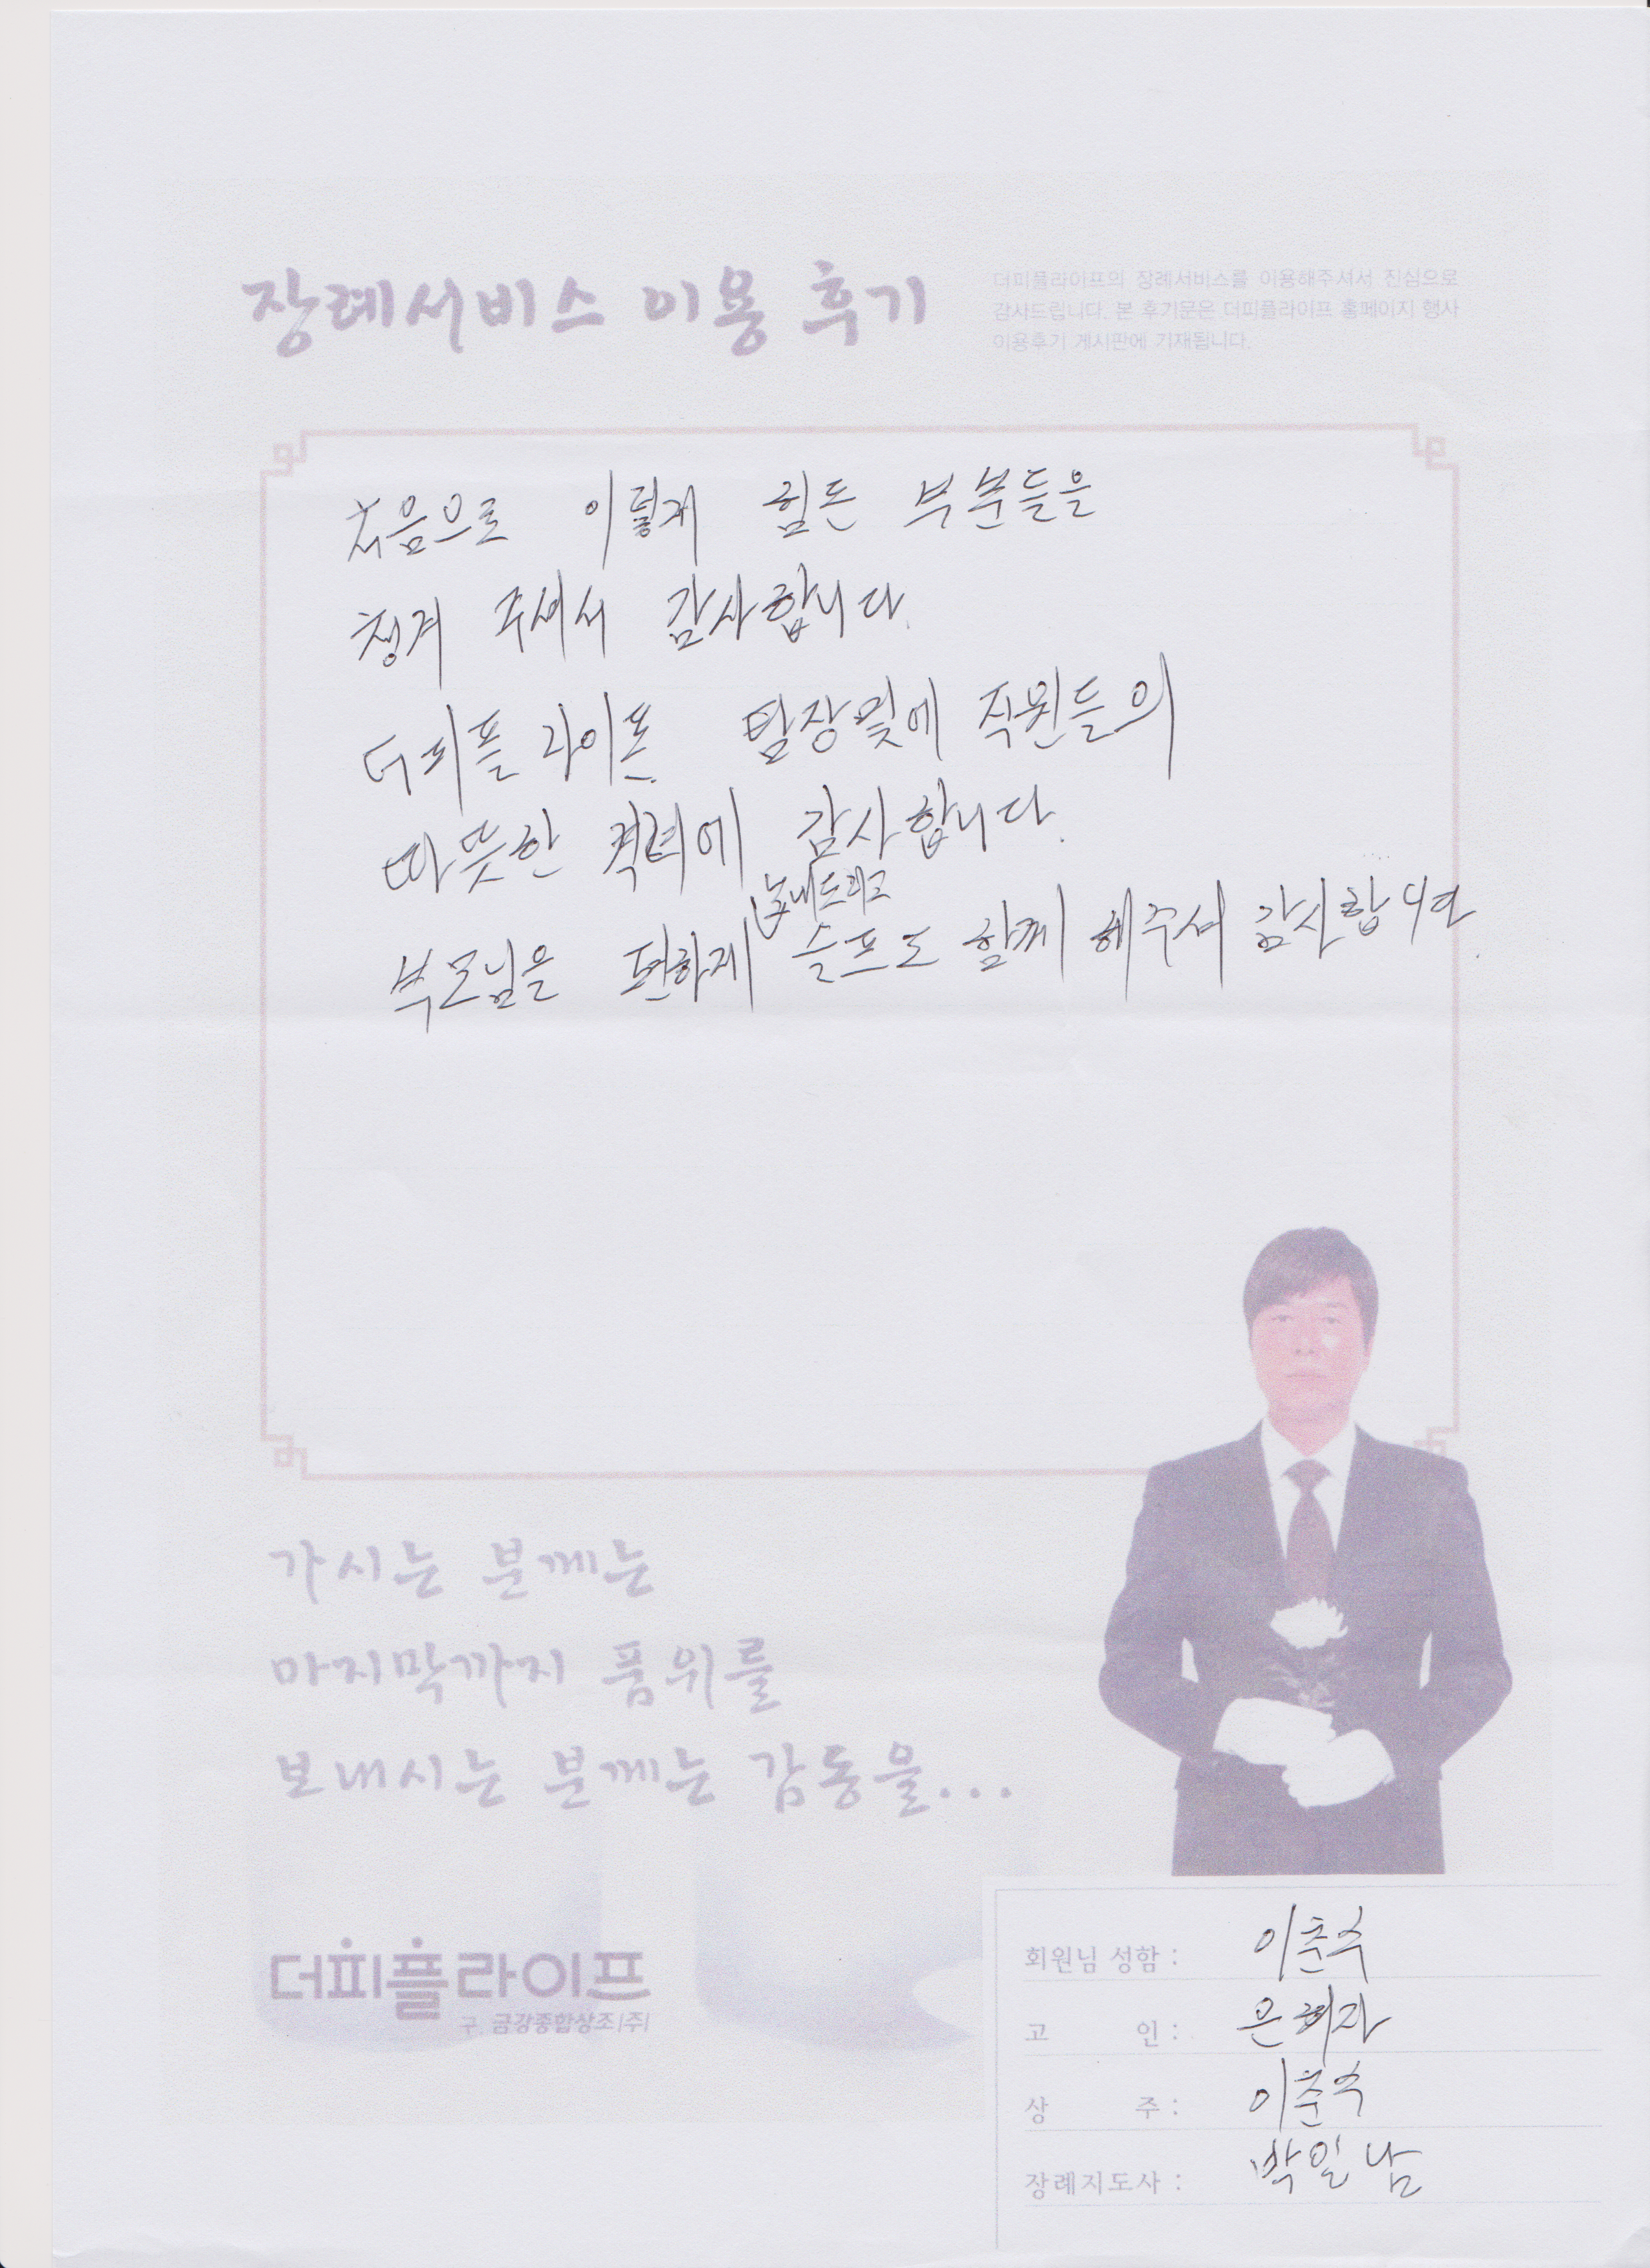 장례서비스 이용 후기
더피플라이프의 장례서비스를 이용해주셔서 진심으로
감사드립니다. 본 후기문은 더피플라이프 홈페이지 행사
이용후기 게시판에 기재됩니다.
처음으로 이렇게 힘든 부분들을
챙겨 주셔서 감사합니다.
더피플 라이프. 팀장및에 직원들의
따뜻한 격려에 감사합니다.
보내드리고
부모님을 편하게 슬프도 함께 해주셔 감사합니다.
가시는 분께는
마지막까지 품위를
보내시는 분께는 감동을...
더피플라이프
구. 금강종합상조(주)
회원님 성함 : 이춘수
고 인 : 은혜자
상 주 : 이춘수
장례지도사 : 박일남